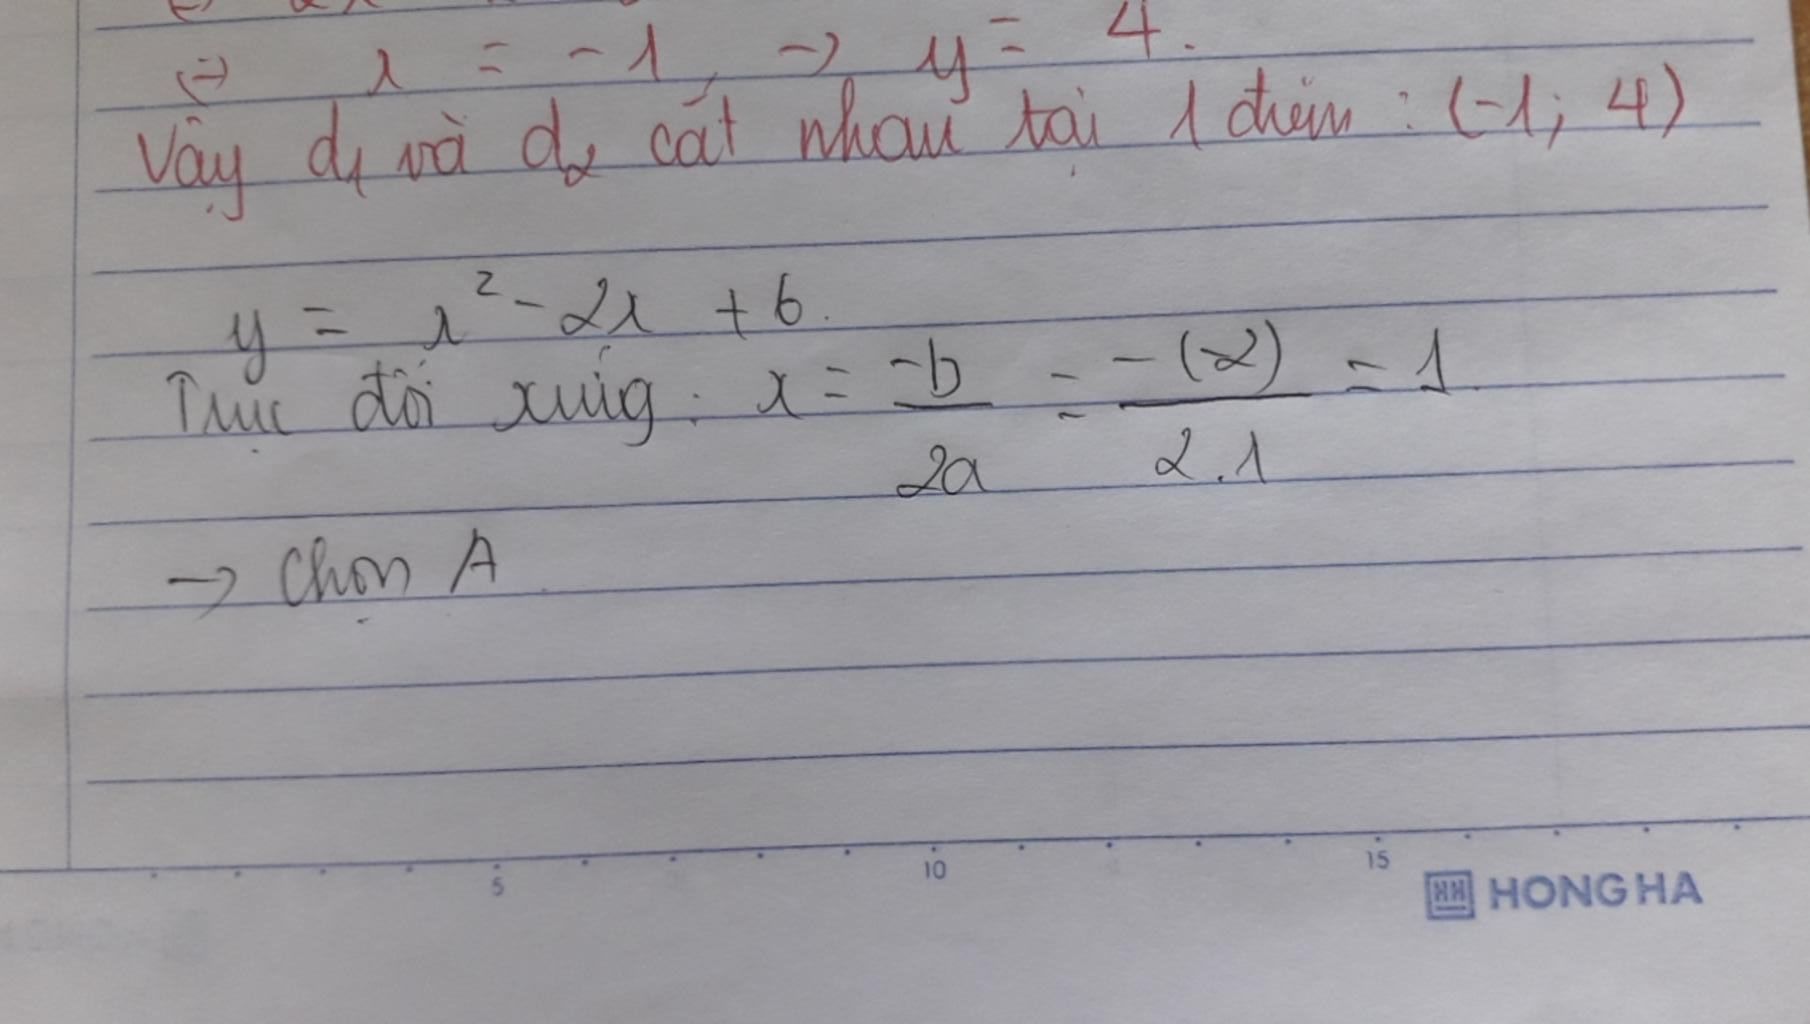 (=) x = -1, → y = 4.
Vậy d₁ và d₂ cắt nhau tại 1 điểm : (-1; 4)
y = x² - 2x + 6.
Trục đối xứng : x = -b/2a = -(-2)/2.1 = 1.
→ Chọn A
5 10 15
HONG HA